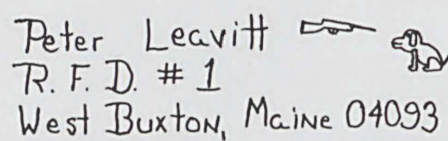 Peter Leavitt
R. F. D. # 1
West Buxton, Maine 04093